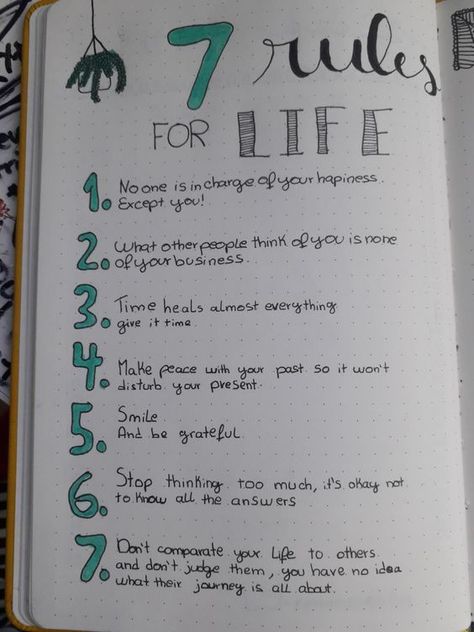 7 rules
FOR LIFE
1. No one is in charge of your hapiness.
Except you!
2. What other people think of you is none
of your business.
3. Time heals almost everything
give it time.
4. Make peace with your past. so it won't
disturb your present.
5. Smile.
And be grateful.
6. Stop thinking too much, it's okay not
to know all the answers
7. Don't comparate your life to others.
and don't judge them, you have no idea
what their journey is all about.